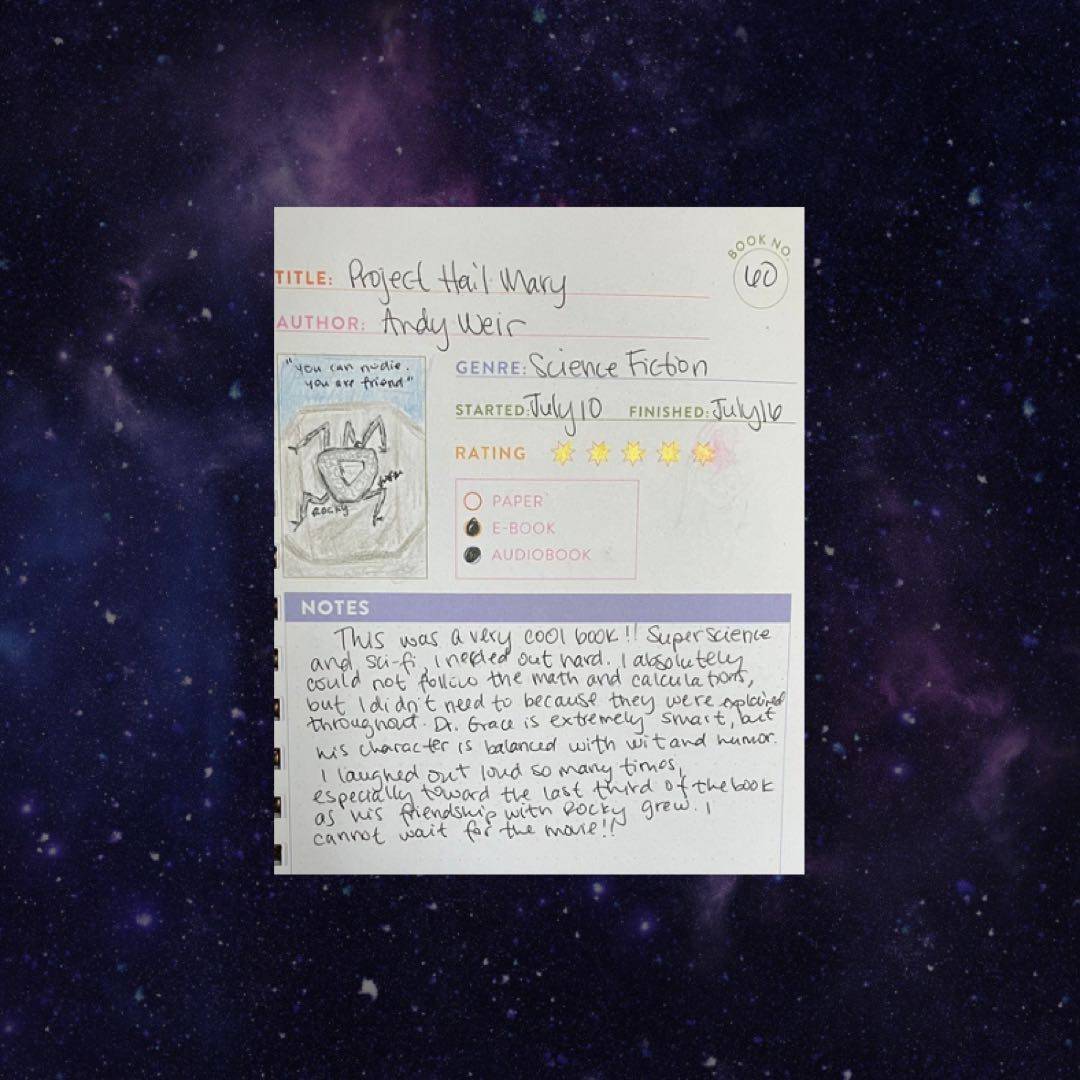 BOOK NO.
60
TITLE: Project Hail Mary
AUTHOR: Andy Weir
"you can no die.
you are friend"
ROCKY
GENRE: Science Fiction
STARTED: July 10 FINISHED: July 16
RATING
PAPER
E-BOOK
AUDIOBOOK
NOTES
This was a very cool book!! Super science
and sci-fi, I nerded out hard. I absolutely
could not follow the math and calculations,
but I didn't need to because they were explained
throughout. Dr. Grace is extremely smart, but
his character is balanced with wit and humor.
I laughed out loud so many times,
especially toward the last third of the book
as his friendship with Rocky grew. I
cannot wait for the movie!!